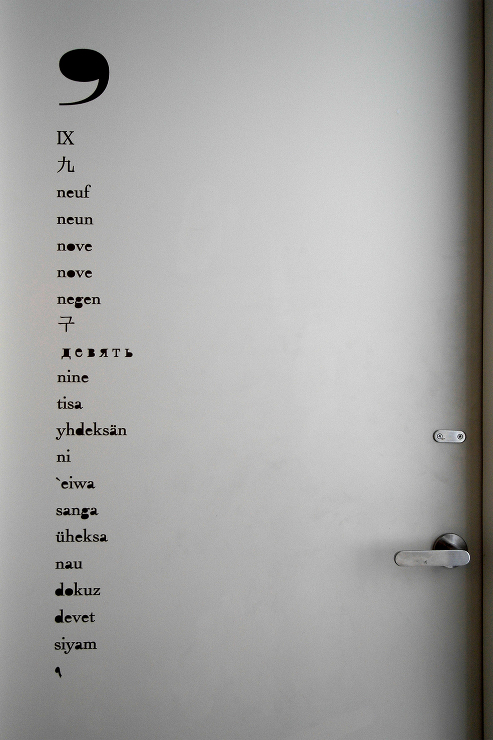 9
IX
九
neuf
neun
nove
nove
negen
구
девять
nine
tisa
yhdeksän
ni
`eiwa
sanga
üheksa
nau
dokuz
devet
siyam
٩